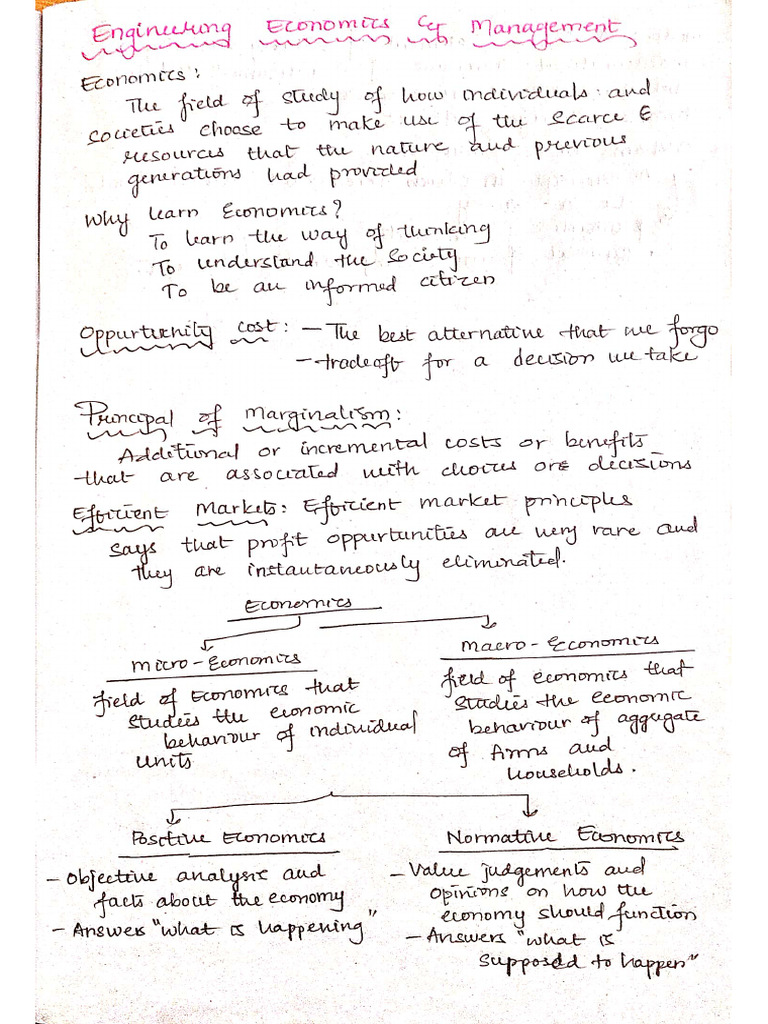 Engineering Economics & Management
Economics:
The field of study of how individuals and
societies choose to make use of the scarce &
resources that the nature and previous
generations had provided
Why learn Economics?
To learn the way of thinking
To understand the society
To be an informed citizen
Oppurtunity cost: - The best alternative that we forgo
- tradeoft for a decision we take
Principal of Marginalism:
Additional or incremental costs or benefits
that are associated with choices ore decisions
Efficient Markets: Efficient market principles
says that profit oppurtunities are very rare and
they are instantaneously eliminated.
Economics
Micro-Economics
Macro-Economics
field of Economics that
studies the economic
behaviour of individual
units
field of economics that
studies the economic
behaviour of aggregate
of firms and
households.
Positive Economics
Normative Economics
- Objective analysis and
facts about the economy
- Answers "what is happening"
- Value judgements and
opinions on how the
economy should function
- Answers "what is
supposed to happen"